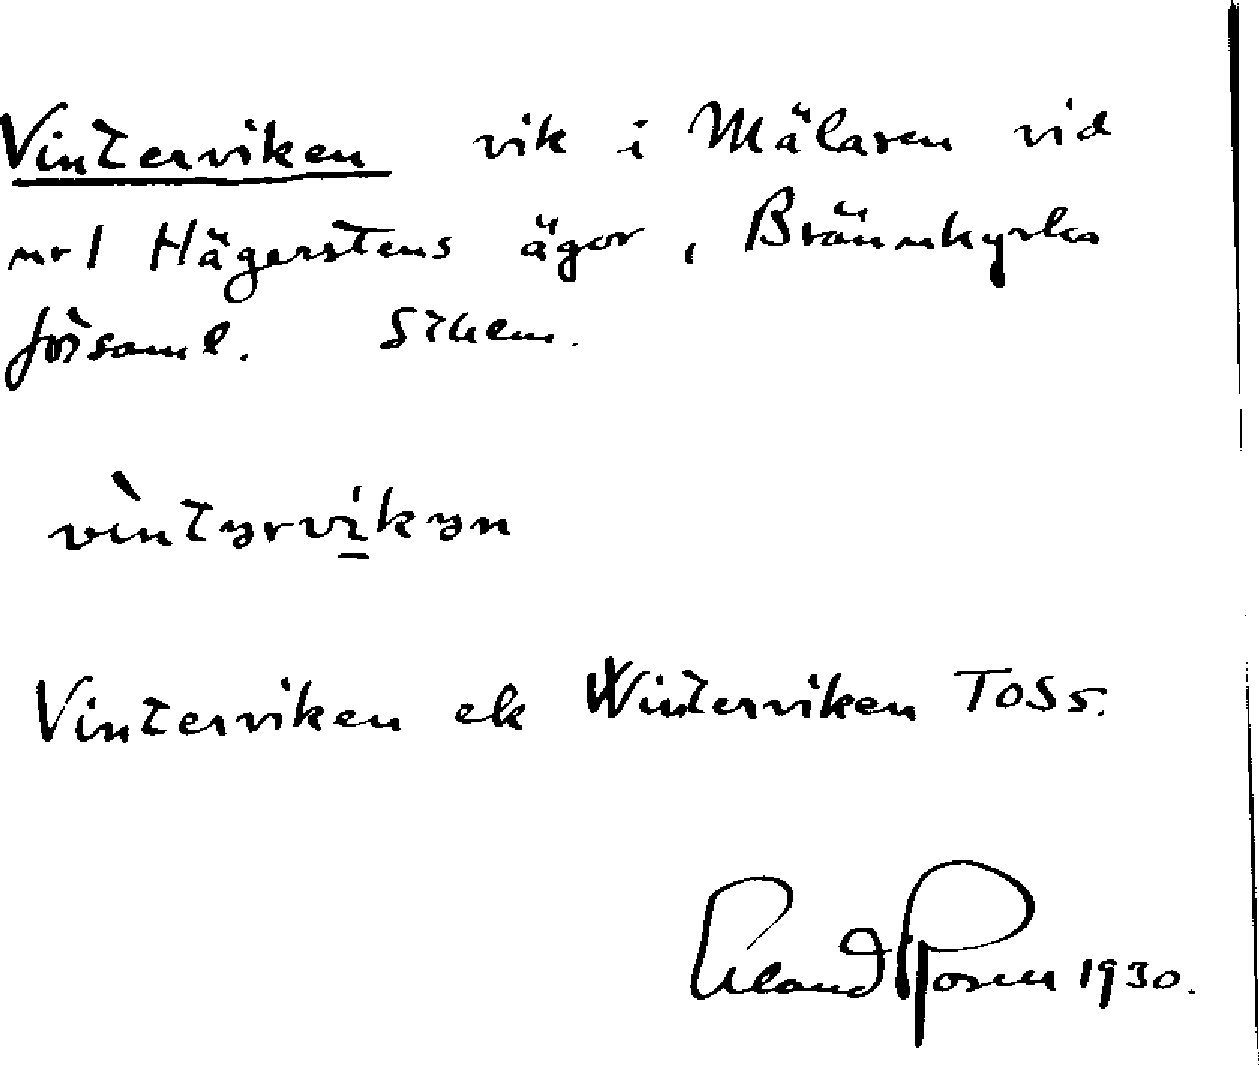 Vinterviken vik i Mälaren vid
nr 1 Hägerstens ägor, Brännkyrka
församl. Sthlm.
vìntyrvikyn
Vinterviken ek Winterviken TOS 5.
Erland Rosell 1930.